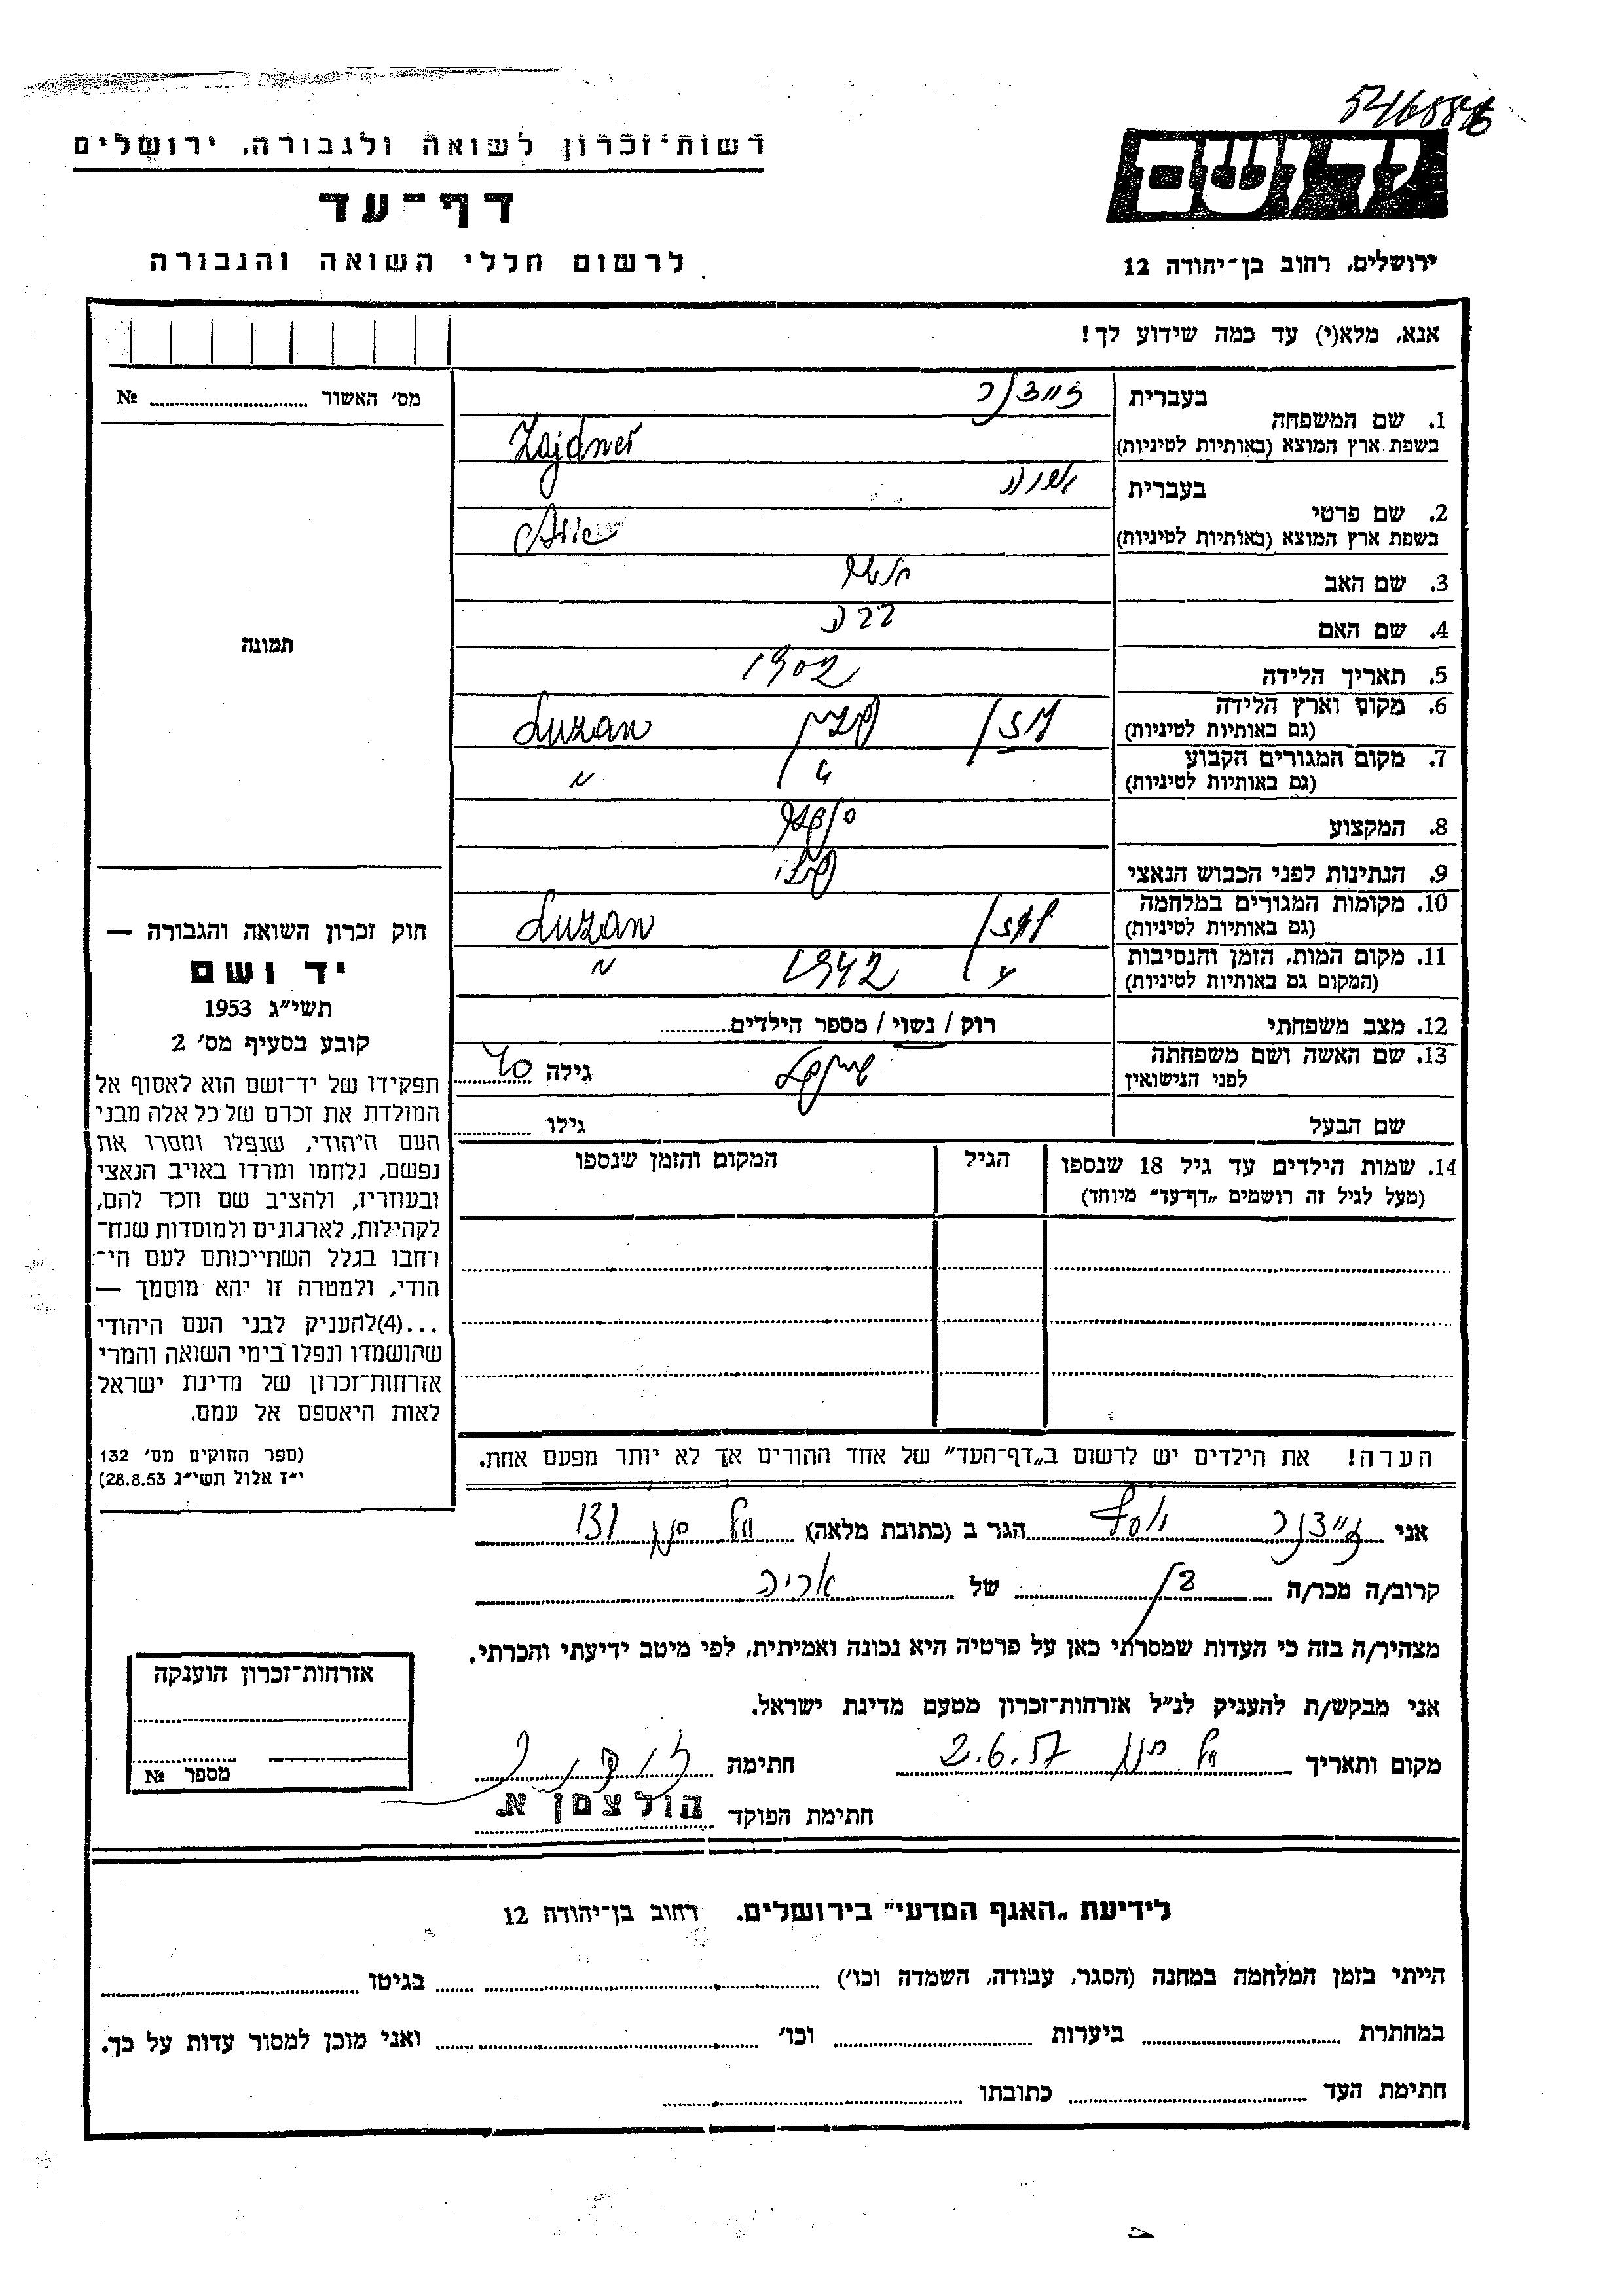 5416886
רשות־זכרון לשואה ולגבורה, ירושלים
יד ושם
דף־עד
ירושלים, רחוב בן־יהודה 12
לרשום חללי השואה והגבורה
אנא, מלא(י) עד כמה שידוע לך!
מס׳ האשור № 
בעברית זיידנר
1. שם המשפחה
בשפת ארץ המוצא (באותיות לטיניות) Zajdner
בעברית
2. שם פרטי
בשפת ארץ המוצא (באותיות לטיניות) Arie
3. שם האב
4. שם האם
5. תאריך הלידה 1902
6. מקום וארץ הלידה Luzan
(גם באותיות לטיניות)
7. מקום המגורים הקבוע "
(גם באותיות לטיניות)
8. המקצוע
9. הנתינות לפני הכבוש הנאצי
10. מקומות המגורים במלחמה Luzan
(גם באותיות לטיניות)
11. מקום המות, הזמן והנסיבות 1942 "
(המקום גם באותיות לטיניות)
12. מצב משפחתי רוק / נשוי / מספר הילדים
13. שם האשה ושם משפחתה גילה 40
לפני הנישואין
שם הבעל גילו
14. שמות הילדים עד גיל 18 שנספו הגיל המקום והזמן שנספו
(מעל לגיל זה רושמים „דף־עד" מיוחד)
תמונה
חוק זכרון השואה והגבורה —
יד ושם
תשי"ג 1953
קובע בסעיף מס׳ 2
תפקידו של יד־ושם הוא לאסוף אל
המולדת את זכרם של כל אלה מבני
העם היהודי, שנפלו ומסרו את
נפשם, נלחמו ומרדו באויב הנאצי
ובעוזריו, ולהציב שם וזכר להם,
לקהילות, לארגונים ולמוסדות שנח־
רחבו בגלל השתייכותם לעם הי־
הודי, ולמטרה זו יהא מוסמך —
...(4)להעניק לבני העם היהודי
שהושמדו ונפלו בימי השואה והמרי
אזרחות־זכרון של מדינת ישראל
לאות היאספם אל עמם.
(ספר החוקים מס׳ 132
י"ז אלול תשי"ג 28.8.53)
הערה! את הילדים יש לרשום ב„דף־העד" של אחד ההורים אך לא יותר מפעם אחת.
אני זיידנר יוסף הגר ב (כתובת מלאה)
קרוב/ה מכר/ה בן של אריה
מצהיר/ה בזה כי העדות שמסרתי כאן על פרטיה היא נכונה ואמיתית, לפי מיטב ידיעתי והכרתי.
אני מבקש/ת להעניק לנ"ל אזרחות־זכרון מטעם מדינת ישראל.
מקום ותאריך 2.6.57 חתימה
חתימת הפוקד הולצמן א.
אזרחות־זכרון הוענקה
מספר №
לידיעת „האגף המדעי" בירושלים. רחוב בן־יהודה 12
הייתי בזמן המלחמה במחנה (הסגר, עבודה, השמדה וכו׳) בגיטו
במחתרת ביערות וכו׳ ואני מוכן למסור עדות על כך.
חתימת העד כתובתו